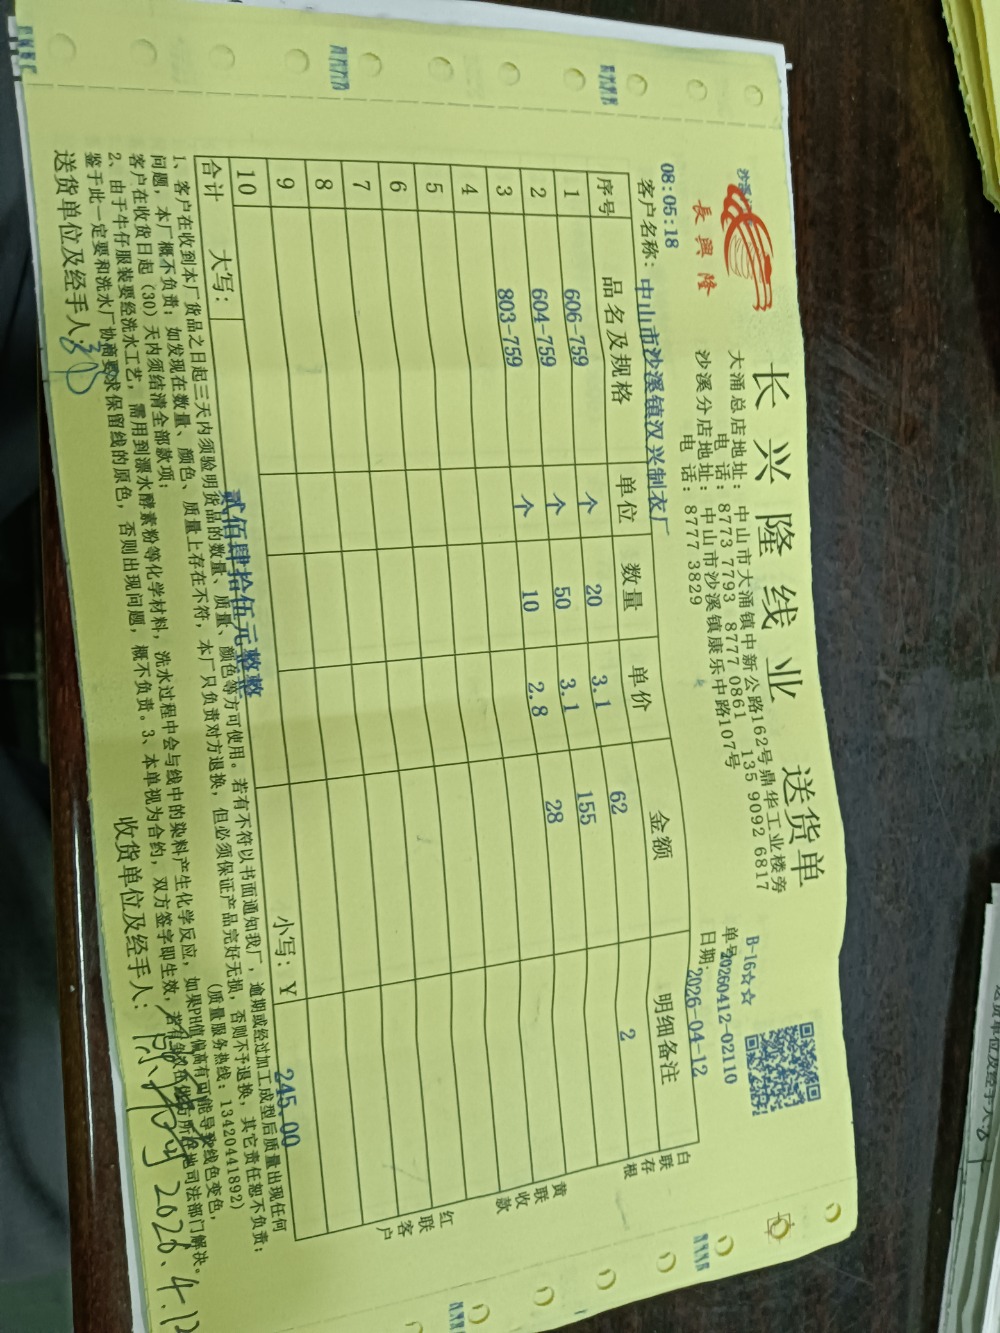 长兴隆线业 送货单
長興隆
大涌总店地址：中山市大涌镇中新公路162号鼎华工业楼旁
电 话：8773 7793 8777 0861 135 9092 6817
沙溪分店地址：中山市沙溪镇康乐中路107号
电 话：8777 3829
B-16☆☆
单号20260412-02110
日期：2026-04-12
08:05:18
客户名称：中山市沙溪镇汉兴制衣厂
序号 品名及规格 单位 数量 单价 金额 明细备注
1 606-759 个 20 3.1 62 2
2 604-759 个 50 3.1 155
3 803-759 个 10 2.8 28
4
5
6
7
8
9
10
合计 大写：贰佰肆拾伍元整整 小写：Y 245.00
白联存根
黄联收款
红联客户
1、客户在收到本厂货品之日起三天内须验明货品的数量、质量、颜色等方可使用。若有不符以书面通知我厂，逾期或经过加工成型后质量出现任何
问题，本厂概不负责；如发现在数量、颜色、质量上存在不符，本厂只负责对方退换，但必须保证产品完好无损，否则不予退换，其它责任恕不负责；
客户在收货日起（30）天内须结清全部款项； （质量服务热线：13420441892）
2、由于牛仔服装要经洗水工艺，需用到漂水酵素粉等化学材料，洗水过程中会与线中的染料产生化学反应，如果PH值偏高有可能导致线色变色，
鉴于此一定要和洗水厂协商要求保留线的原色，否则出现问题，概不负责。3、本单视为合约，双方签字即生效，若有 所在地司法部门解决。
送货单位及经手人： 收货单位及经手人： 2026.4.12